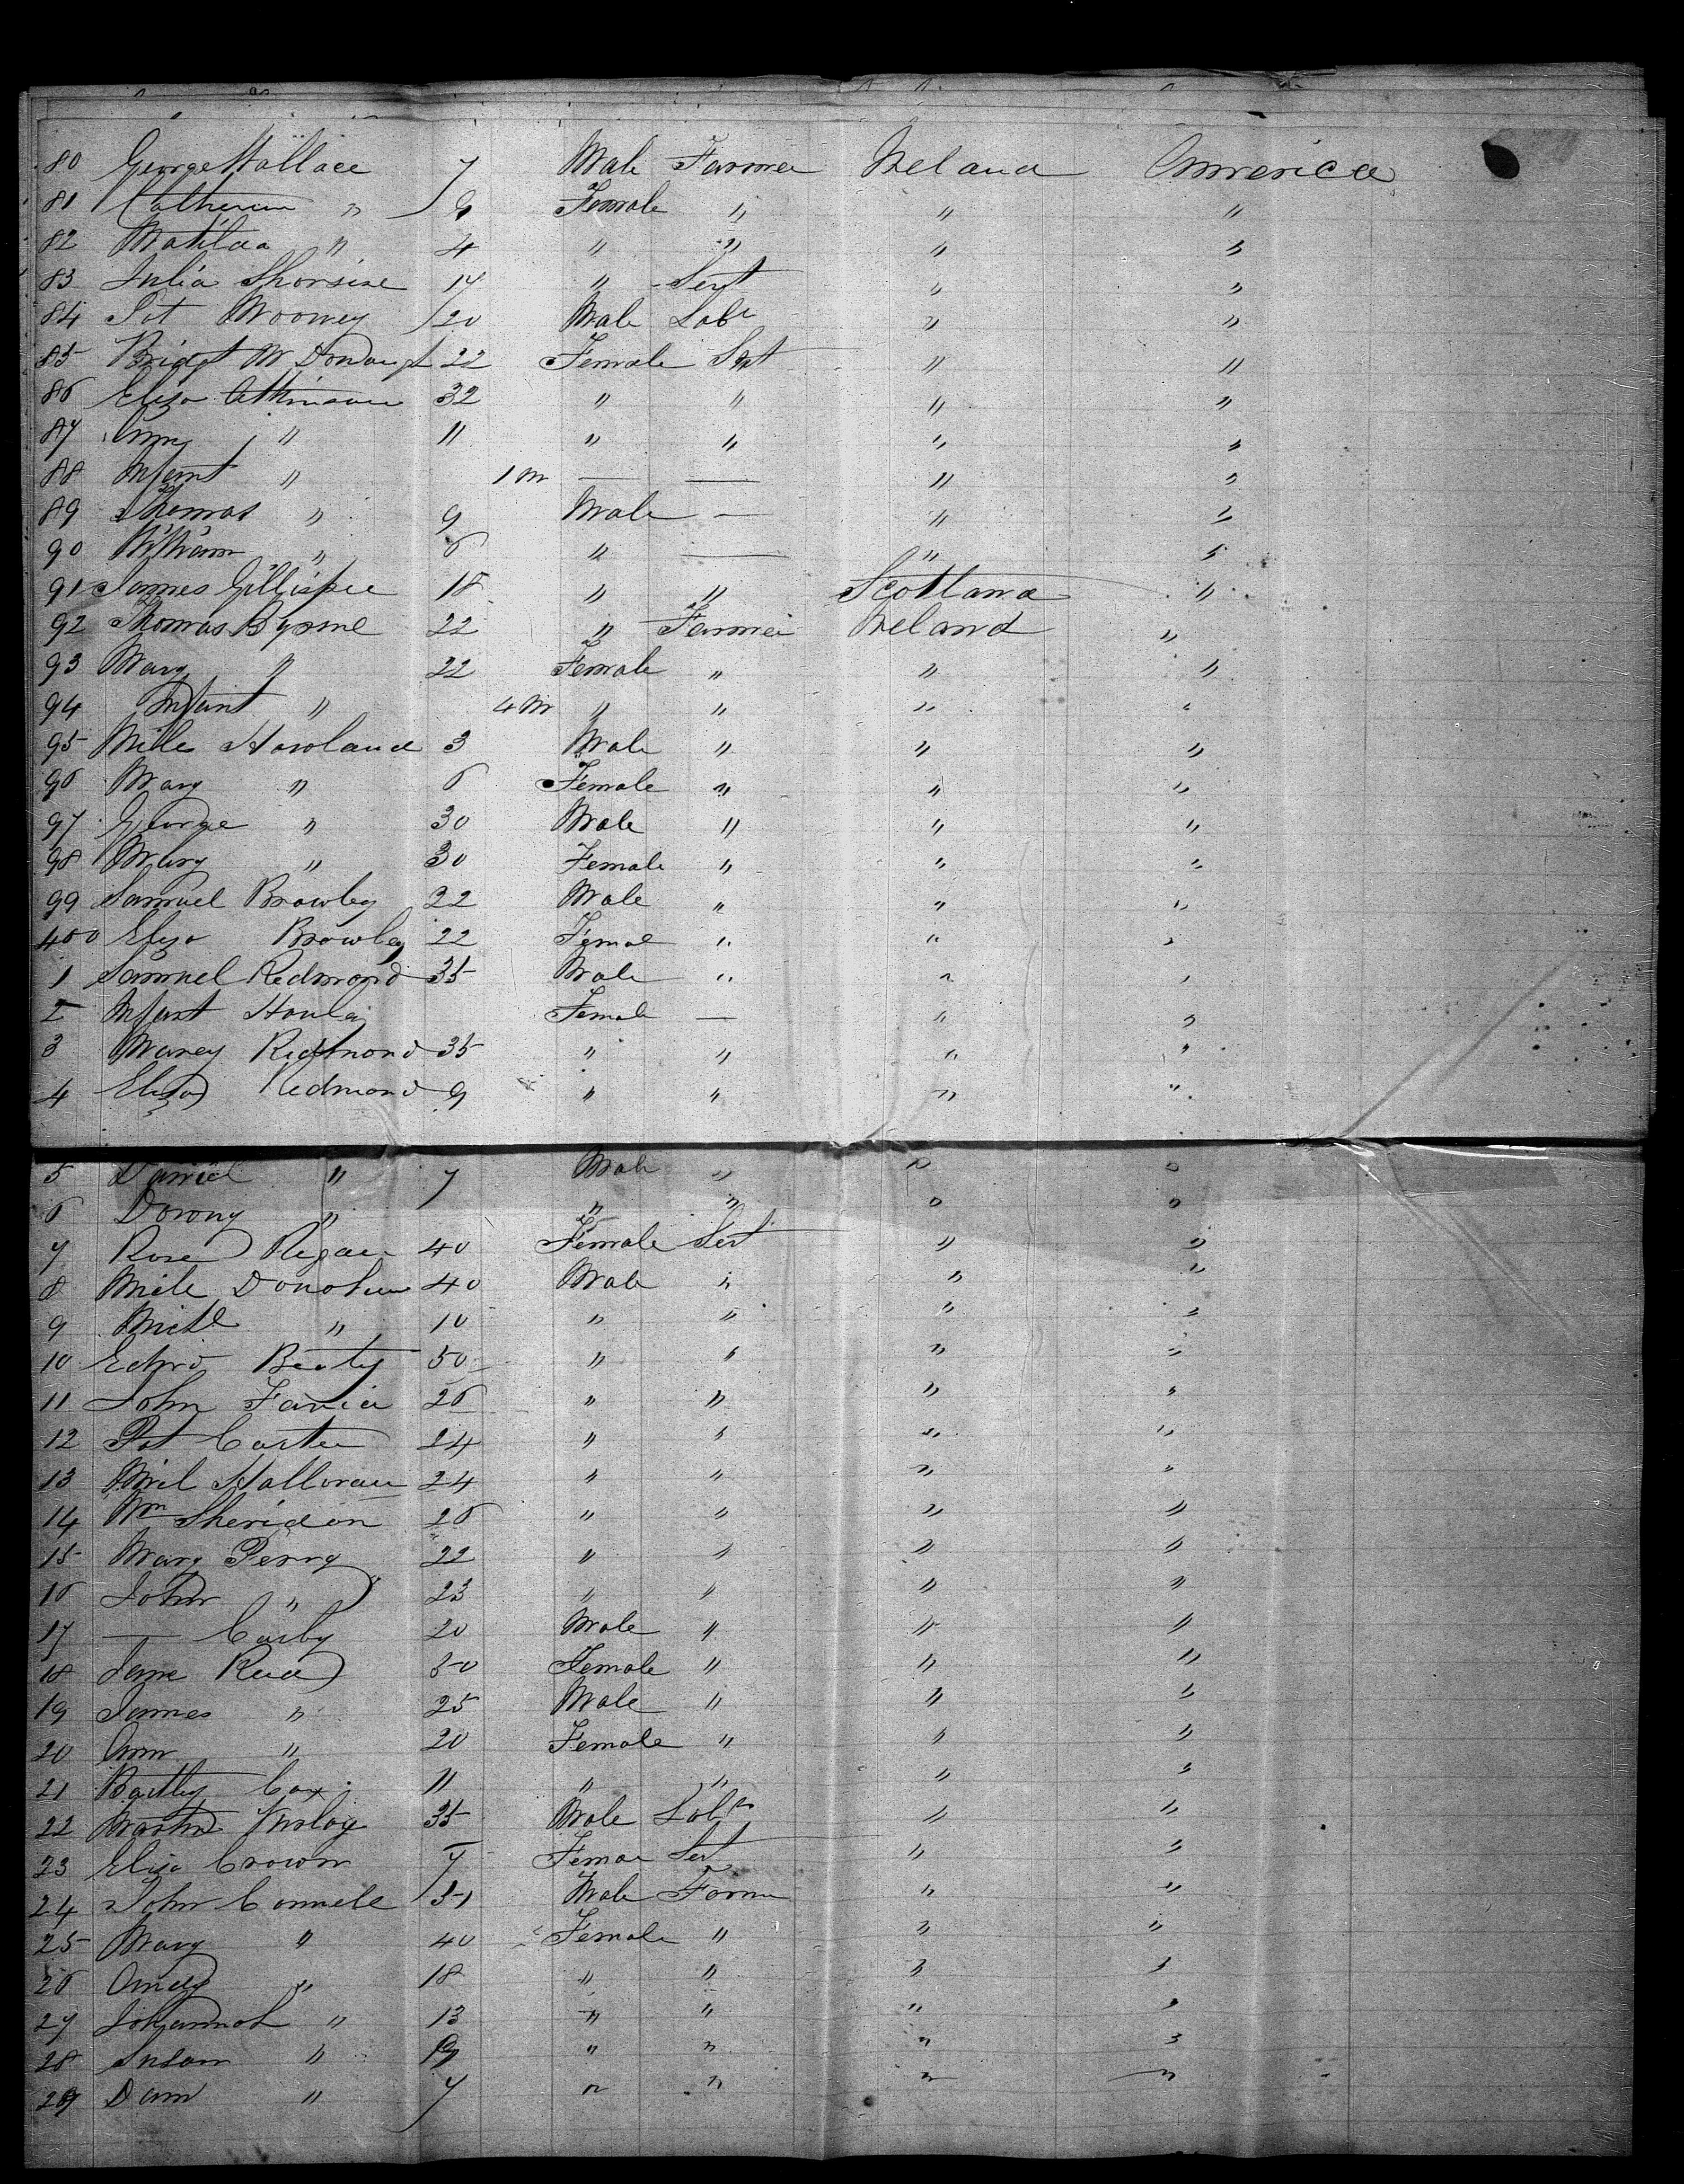 80 George Wallace 7 Male Farmer Ireland America
81 Catherine " 6 Female " " "
82 Matilda " 4 " " " "
83 Julia 17 " Servt " "
84 Pat Mooney 20 Male Labr " "
85 Bridgt McDonaugh 22 Female Svt " "
86 Eliza Atkinson 32 " " " "
87 Amy " 11 " " " "
88 Infant " 1 m — — " "
89 Thomas " 9 Male — " "
90 William " 6 " — " "
91 James Gillispie 18 " " Scotland "
92 Thomas Byrne 22 " Farmer Ireland "
93 Mary " 22 Female " " "
94 Infant " 4 M " " " "
95 Howland 3 Male " " "
96 Mary " 6 Female " " "
97 George " 30 Male " " "
98 Mary " 30 Female " " "
99 Samuel Browley 22 Male " " "
400 Eliza Browley 22 Femal " " "
1 Samuel Redmond 35 Male " " "
2 Infant Female — " "
3 Redmond 35 " " " "
4 Eliza Redmond 9 " " " "
5 Daniel " 7 Male " " "
6 " " " " "
7 Rose Regan 40 Female Servt " "
8 Donohue 40 Male " " "
9 Michl " 10 " " " "
10 Edwd Beaty 50 " " " "
11 John 26 " " " "
12 Pat Carter 24 " " " "
13 Halloran 24 " " " "
14 Wm Sheridan 26 " " " "
15 Mary Perry 22 " " " "
16 John " 23 " " " "
17 — 20 Male " " "
18 Jane 50 Female " " "
19 James " 25 Male " " "
20 Ann " 20 Female " " "
21 Cox 11 " " " "
22 Martin 35 Male Labr " "
23 Eliza Crown 7 Svt " "
24 John 51 Male Farm " "
25 Mary " 40 Female " " "
26 " 18 " " " "
27 Johannah " 13 " " " "
28 Susan " " " " "
29 " 7 " " " "